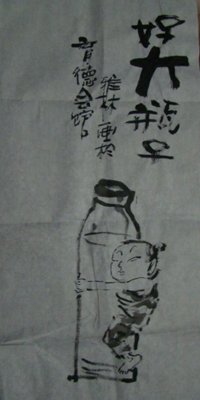 好大瓶子
雅林画於
育德会馆